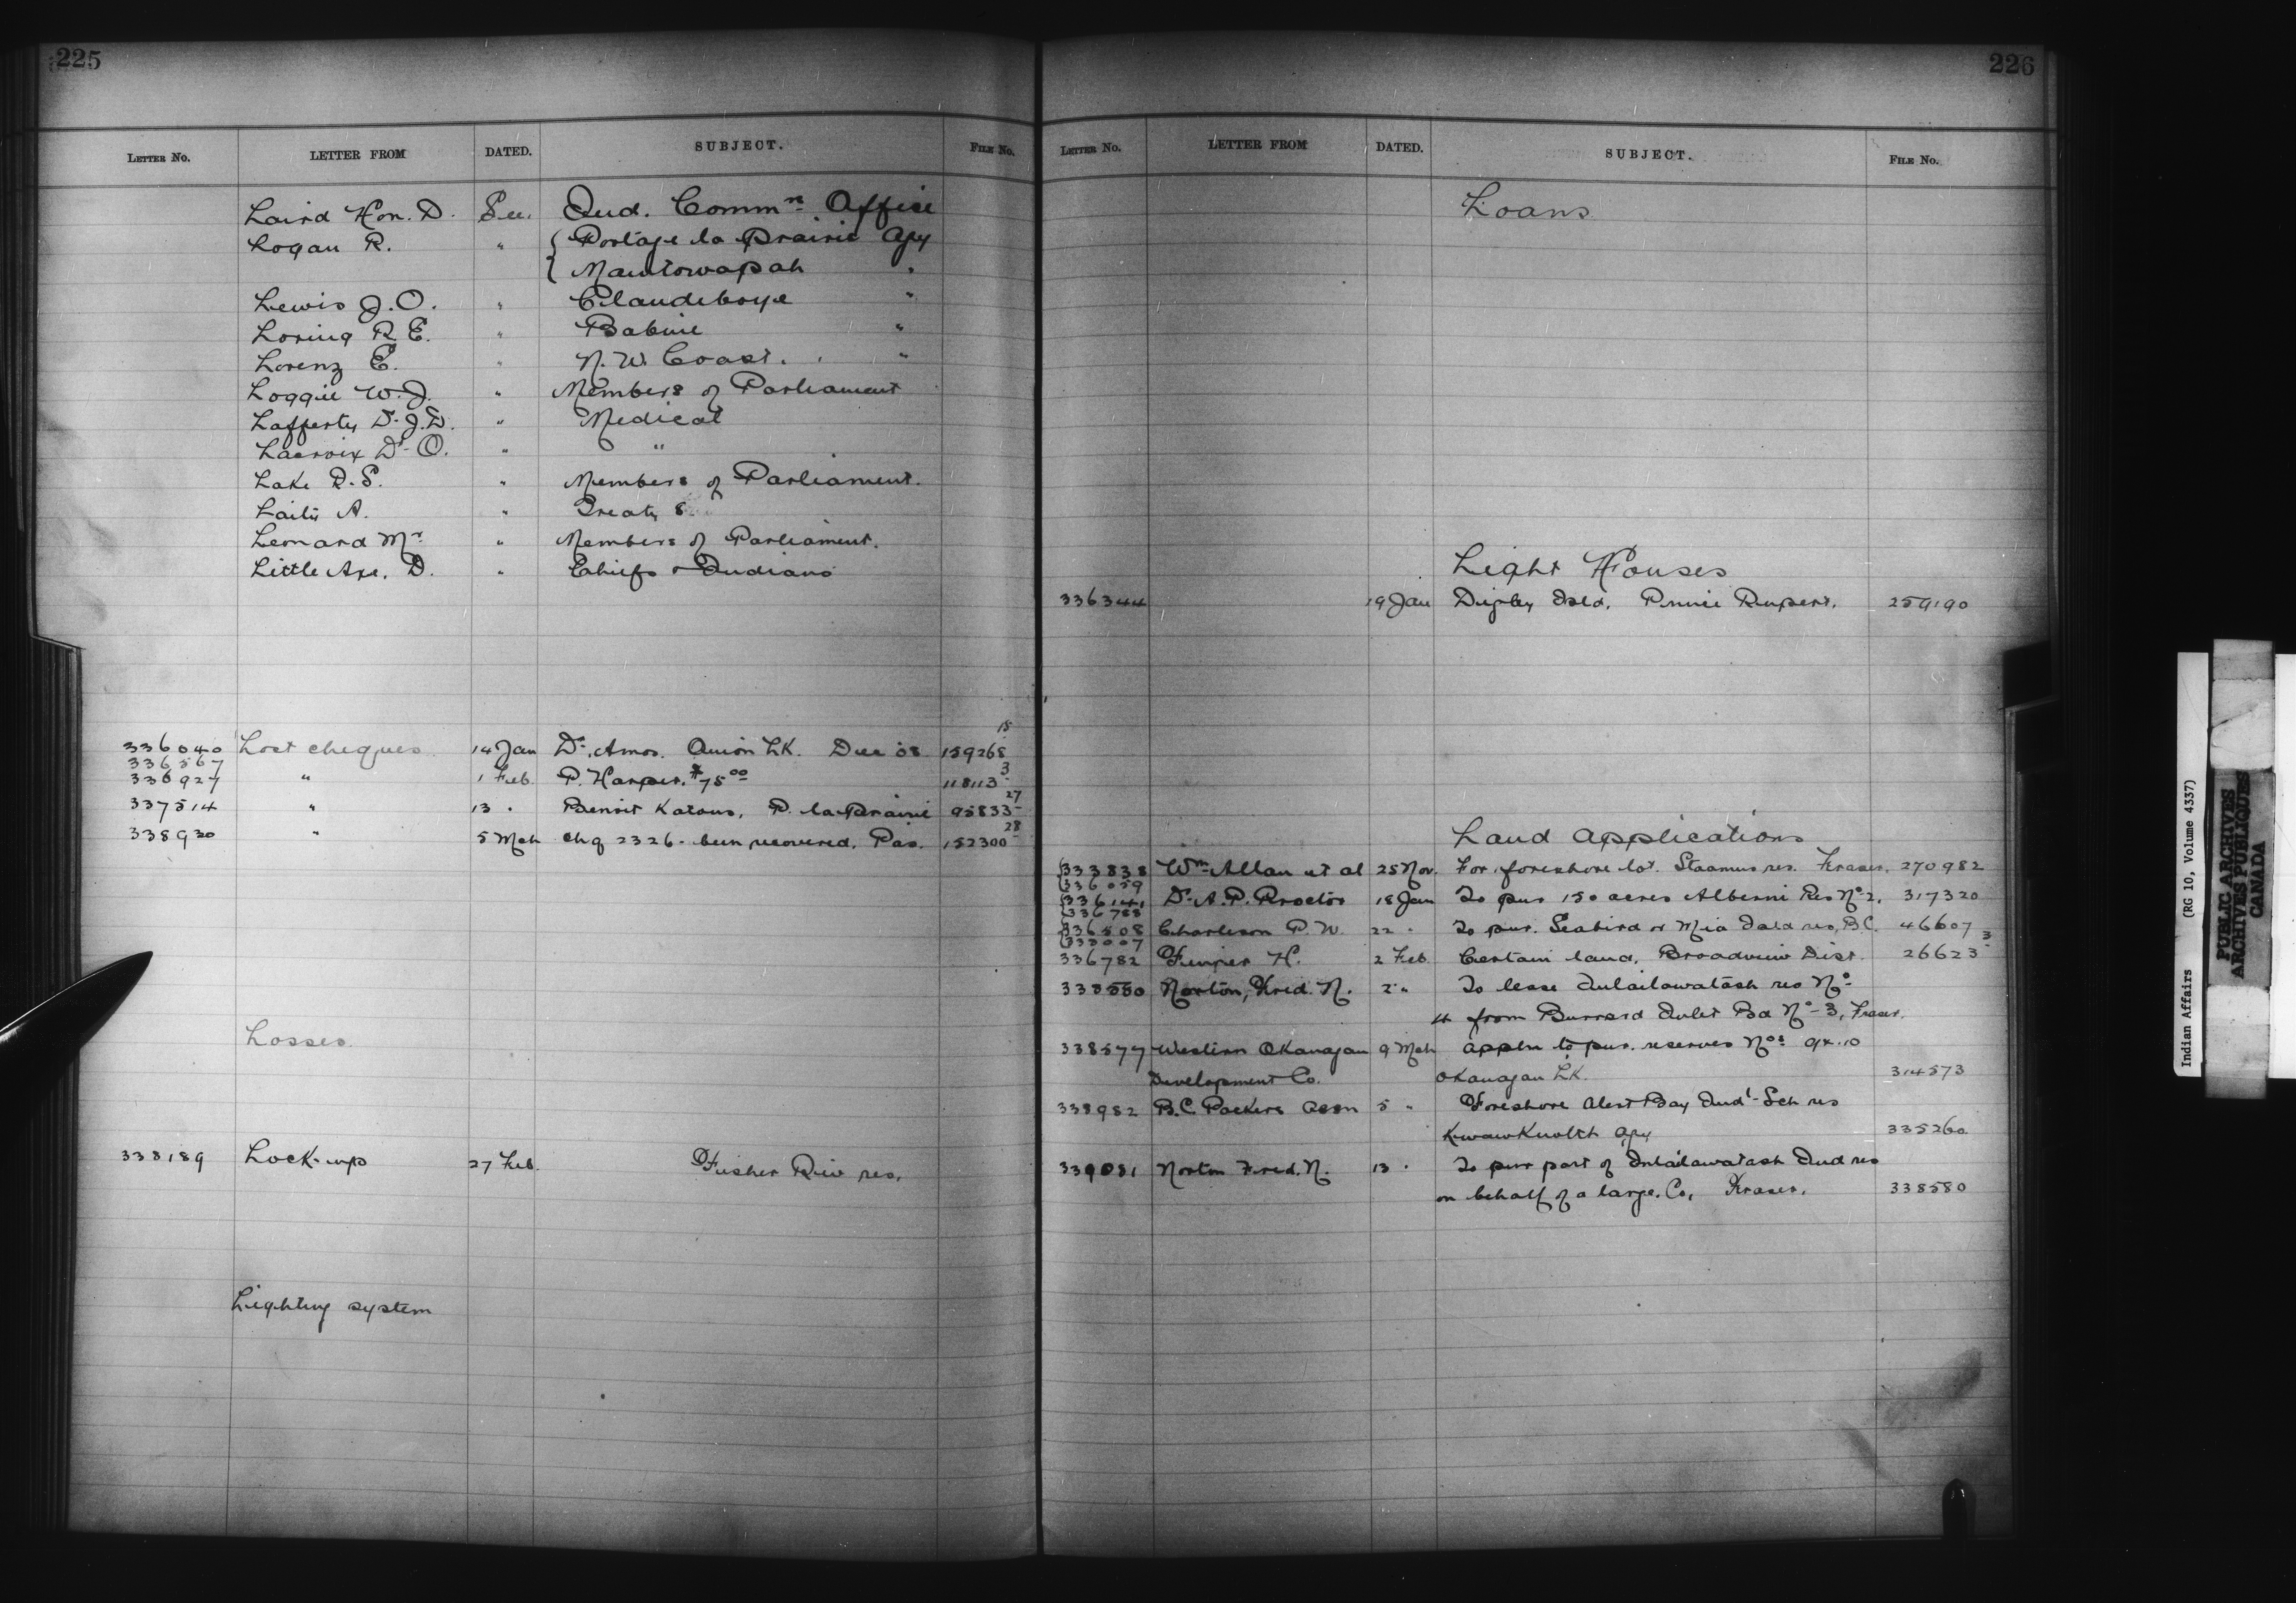 225
LETTER No. LETTER FROM DATED. SUBJECT. FILE No.
Laird Hon. D. See Ind. Commn Office
Logan R. " { Portage la Prairie Agy
{ Manitowapah "
Lewis J.O. " Clandeboye "
Loring R.E. " Babine "
Lorenz E. " N.W. Coast. "
Loggie W.J. " Members of Parliament
Lafferty Dr J.D. " Medical
Lacroix Dr O. " "
Lake R.S. " Members of Parliament.
A. " Treaty 8
Leonard Mr " Members of Parliament.
Little Axe, D. " Chiefs & Indians
336040 Lost cheques 14 Jan Dr. Amos. Onion Lk. Dec 08 159268 15
336567
336927 " 1 Feb. P. Harper. $75 00 118113 3
337514 " 13 " Benoit P. la Prairie 95833 27
338930 " 5 Mch chq 2326 - been recovered. Pas. 152300 28
Losses
338189 Lock-up 27 Feb. Fisher Riv res.
Lighting system
226
LETTER No. LETTER FROM DATED. SUBJECT. FILE No.
Loans
Light Houses
336344 19 Jan Digby Isld. Prince Rupert. 259190
Land Applications
{333838 Wm Allan et al 25 Nov. For foreshore lot. Staamus res. Fraser. 270982
{336059
{336141 Dr A.P. Proctor 18 Jan To pur 150 acres Alberni Res No 2. 317320
{336788
{336508 Charleson P.W. 22 " To pur. Seabird or Mia Isld res, B.C. 46607
{333007
336782 H. 2 Feb. Certain land, Broadview Dist. 26623 3
338580 Norton, Fred. N. 2 " To lease Inlailawatash res No
4 from Burrard Inlet Bd No 3, Fraser.
338577 Western Okanagan 9 Mch Appln to pur. reserves Nos 9 & 10
Development Co. Okanagan Lk. 314573
338982 B.C. Packers Assn 5 " Foreshore Alert Bay Indl Sch res
Kwawkewlth Agy 335260
339081 Norton Fred. N. 13 " To pur part of Inlailawatash Ind res
on behalf of a large Co, Fraser. 338580
Indian Affairs (RG 10, Volume 4337)
PUBLIC ARCHIVES
ARCHIVES PUBLIQUES
CANADA